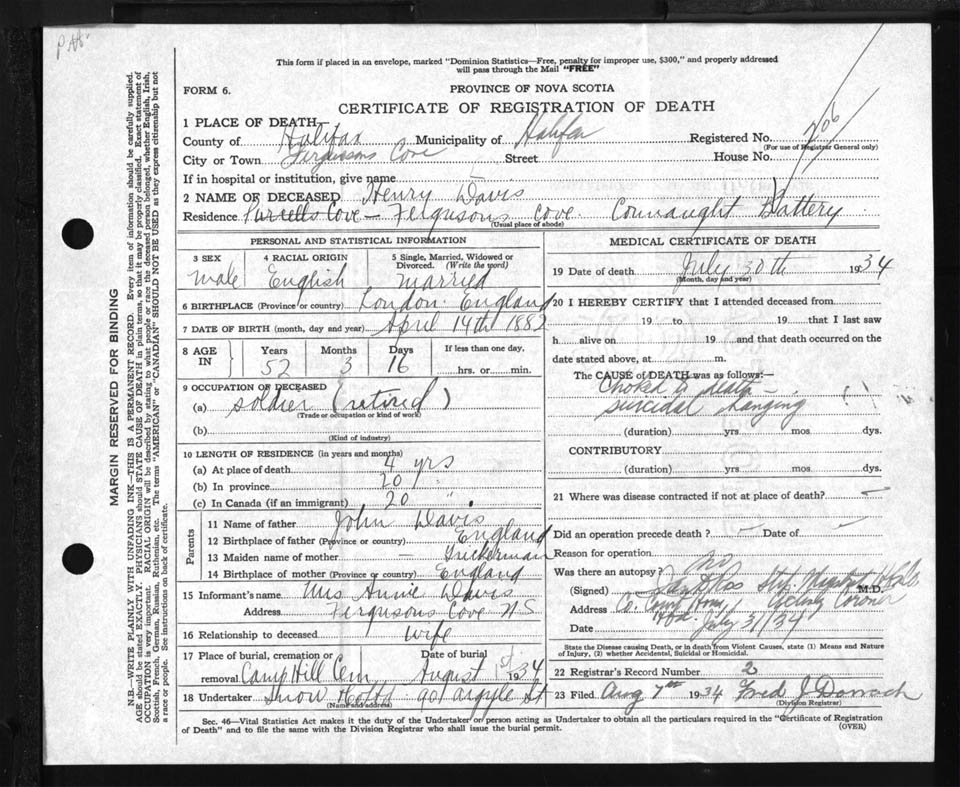 This form if placed in an envelope, marked "Dominion Statistics—Free, penalty for improper use, $300," and properly addressed
will pass through the Mail "FREE"
FORM 6.
PROVINCE OF NOVA SCOTIA
CERTIFICATE OF REGISTRATION OF DEATH
1 PLACE OF DEATH—
County of Halifax Municipality of Halifax Registered No. 706
(For use of Registrar General only)
City or Town Fergusons Cove Street House No.
If in hospital or institution, give name
2 NAME OF DECEASED Henry Davis
Residence Purcells Cove — Fergusons Cove. Connaught Battery
(Usual place of abode)
PERSONAL AND STATISTICAL INFORMATION
3 SEX
male
4 RACIAL ORIGIN
English
5 Single, Married, Widowed or
Divorced. (Write the word)
Married
6 BIRTHPLACE (Province or country) London. England
7 DATE OF BIRTH (month, day and year) April 14th 1882
8 AGE IN
Years Months Days If less than one day,
52 3 16 hrs. or min.
9 OCCUPATION OF DECEASED
(a) soldier (retired)
(Trade or occupation or kind of work)
(b)
(Kind of industry)
10 LENGTH OF RESIDENCE (in years and months)
(a) At place of death 4 yrs
(b) In province 20 "
(c) In Canada (if an immigrant) 20 "
Parents
11 Name of father John Davis
12 Birthplace of father (Province or country) England
13 Maiden name of mother — Tuckerman
14 Birthplace of mother (Province or country) England
15 Informant's name Mrs Annie Davis
Address Fergusons Cove N S
16 Relationship to deceased wife
17 Place of burial, cremation or Date of burial
removal Camp Hill Cem August 1st 1934
18 Undertaker Snow & Co Ltd 90 Argyle St
(Name and address)
MEDICAL CERTIFICATE OF DEATH
19 Date of death July 30th 1934
(Month, day and year)
20 I HEREBY CERTIFY that I attended deceased from
19 to 19 that I last saw
h alive on 19 and that death occurred on the
date stated above, at m.
The CAUSE of DEATH was as follows:—
Choked to death —
suicidal hanging
(duration) yrs mos dys.
CONTRIBUTORY
(duration) yrs mos dys.
21 Where was disease contracted if not at place of death? —
Did an operation precede death? — Date of —
Reason for operation
Was there an autopsy? no
(Signed) M.D.
Address Co. Court House Acting Coroner
Hfx.
Date July 31/34
State the Disease causing Death, or in death from Violent Causes, state (1) Means and Nature
of Injury, (2) whether Accidental, Suicidal or Homicidal.
22 Registrar's Record Number 2
23 Filed Aug 7th 1934 Fred J Darrach
(Division Registrar)
Sec. 46—Vital Statistics Act makes it the duty of the Undertaker or person acting as Undertaker to obtain all the particulars required in the "Certificate of Registration
of Death" and to file the same with the Division Registrar who shall issue the burial permit.
(OVER)
MARGIN RESERVED FOR BINDING
N.B.—WRITE PLAINLY WITH UNFADING INK—THIS IS A PERMANENT RECORD. Every item of information should be carefully supplied.
AGE should be stated EXACTLY. PHYSICIANS should STATE CAUSE OF DEATH in plain terms, so that it may be properly classified. Exact statement of
OCCUPATION is very important. RACIAL ORIGIN will be described by stating to what people or race the deceased person belonged, whether English, Irish,
Scottish, French, German, Russian, Ruthenian, etc. The terms "AMERICAN" or "CANADIAN" SHOULD NOT BE USED as they express citizenship but not
a race or people. See instructions on back of certificate.